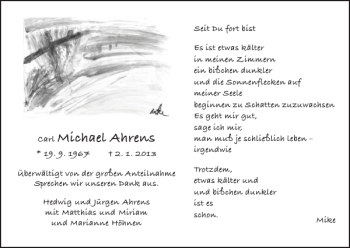 Carl Michael Ahrens
* 19. 9. 1967 † 2. 1. 2013
Überwältigt von der großen Anteilnahme
Sprechen wir unseren Dank aus.
Hedwig und Jürgen Ahrens
mit Matthias und Miriam
und Marianne Höhnen
Seit Du fort bist
Es ist etwas kälter
in meinen Zimmern
ein bißchen dunkler
und die Sonnenflecken auf
meiner Seele
beginnen zu Schatten zuzuwachsen
Es geht mir gut,
sage ich mir,
man muß ja schließlich leben –
irgendwie
Trotzdem,
etwas kälter und
und bißchen dunkler
ist es
schon.
Mike